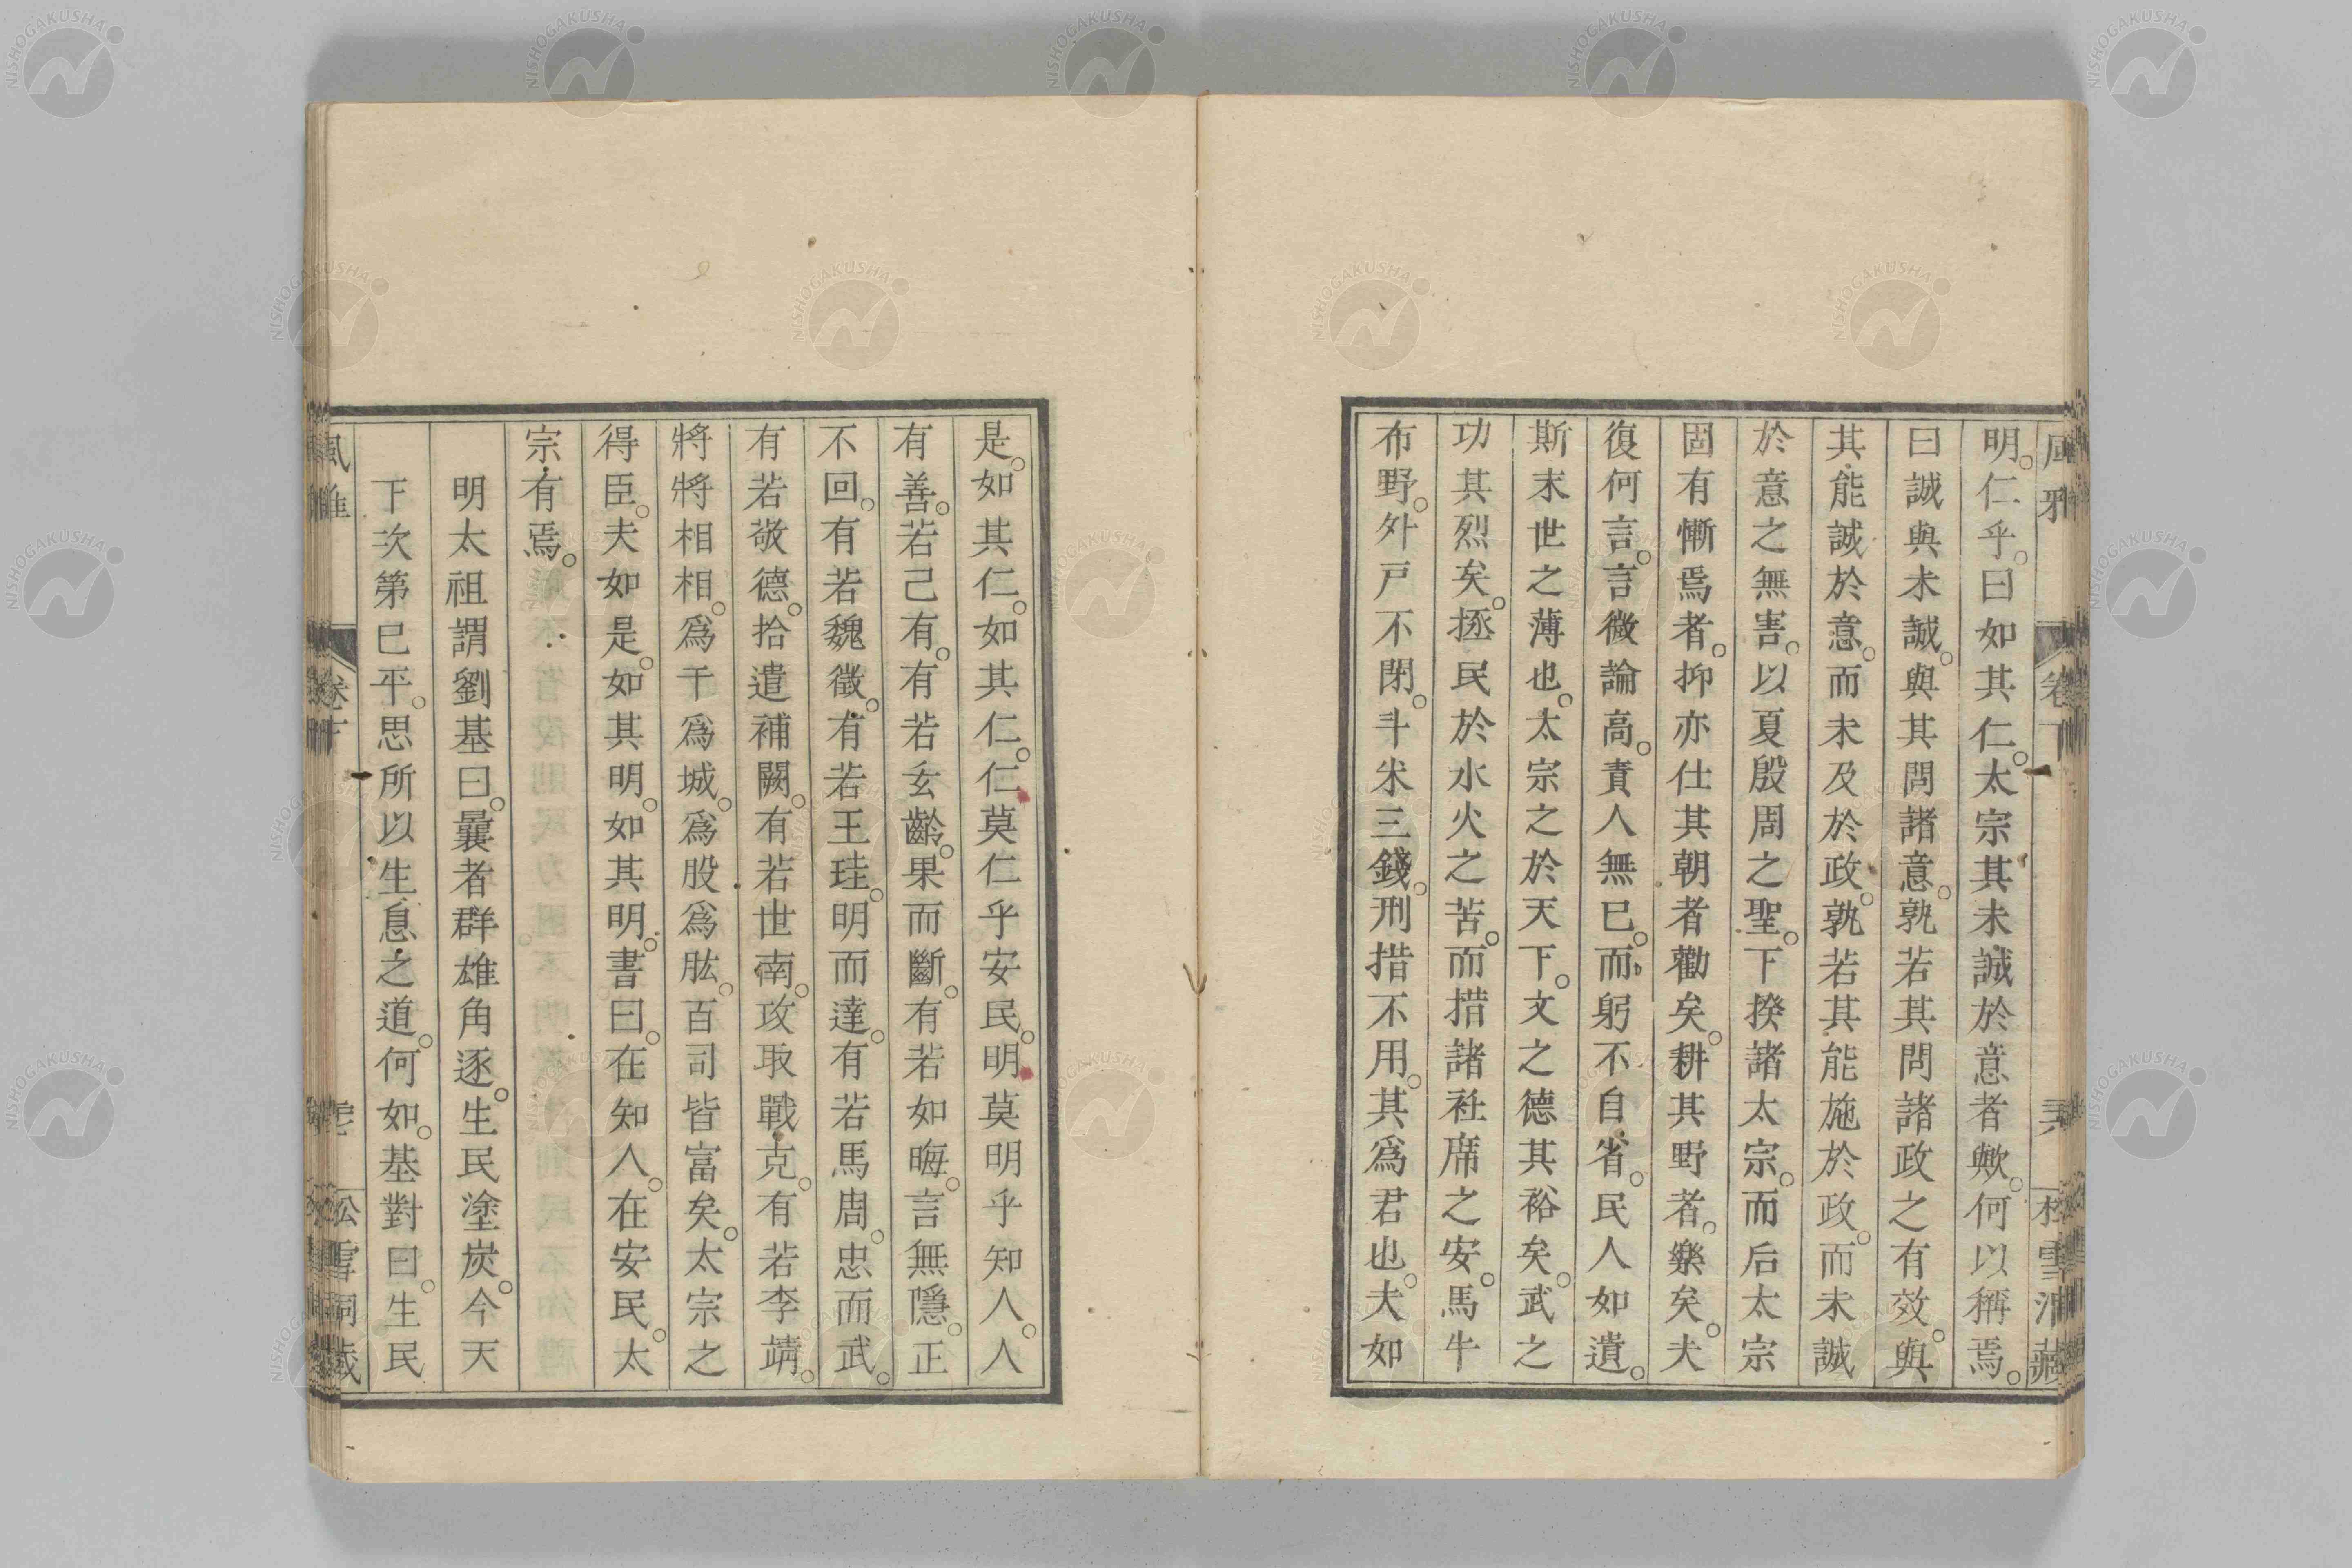 明。仁乎。曰如其仁。太宗其未誠於意者歟。何以稱焉。
曰誠與未誠。與其問諸意。孰若其問諸政之有效。與
其能誠於意。而未及於政。孰若其能施於政。而未誠
於意之無害。以夏殷周之聖。下揆諸太宗。而后太宗
固有慚焉者。抑亦仕其朝者勸矣。耕其野者。樂矣。夫
復何言。言微論高。責人無已。而躬不自省。民人如遺。
斯末世之薄也。太宗之於天下。文之德其裕矣。武之
功其烈矣。拯民於水火之苦。而措諸衽席之安。馬牛
布野。外戸不閉。斗米三錢。刑措不用。其爲君也。夫如
是。如其仁。如其仁。仁莫仁乎安民。明莫明乎知人。人
有善。若己有。有若玄齡。果而斷。有若如晦。言無隱。正
不回。有若魏徵。有若王珪。明而達。有若馬周。忠而武。
有若敬德。拾遺補闕。有若世南。攻取戰克。有若李靖。
將將相相。爲干爲城。爲股爲肱。百司皆富矣。太宗之
得臣。夫如是。如其明。如其明。書曰。在知人。在安民。太
宗有焉。
明太祖謂劉基曰。曩者群雄角逐。生民塗炭。今天
下次第已平。思所以生息之道。何如。基對曰。生民
卷下
NISHOGAKUSHA